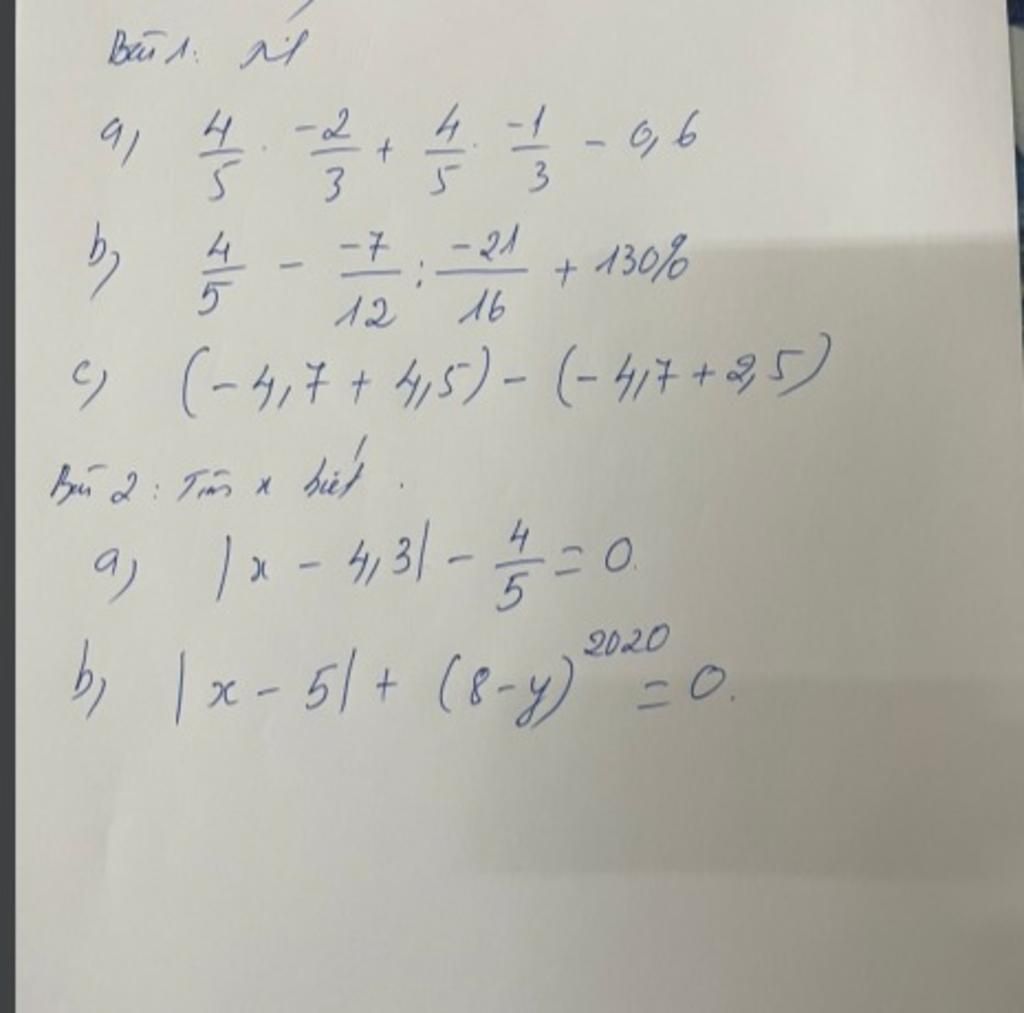 Bài 1:
a, 4/5 . -2/3 + 4/5 . -1/3 - 0,6
b, 4/5 - -7/12 : -21/16 + 130%
c, (-4,7 + 4,5) - (-4,7 + 2,5)
Bài 2 : Tìm x biết .
a, |x - 4,3| - 4/5 = 0.
b, |x - 5| + (8-y)^2020 = 0.